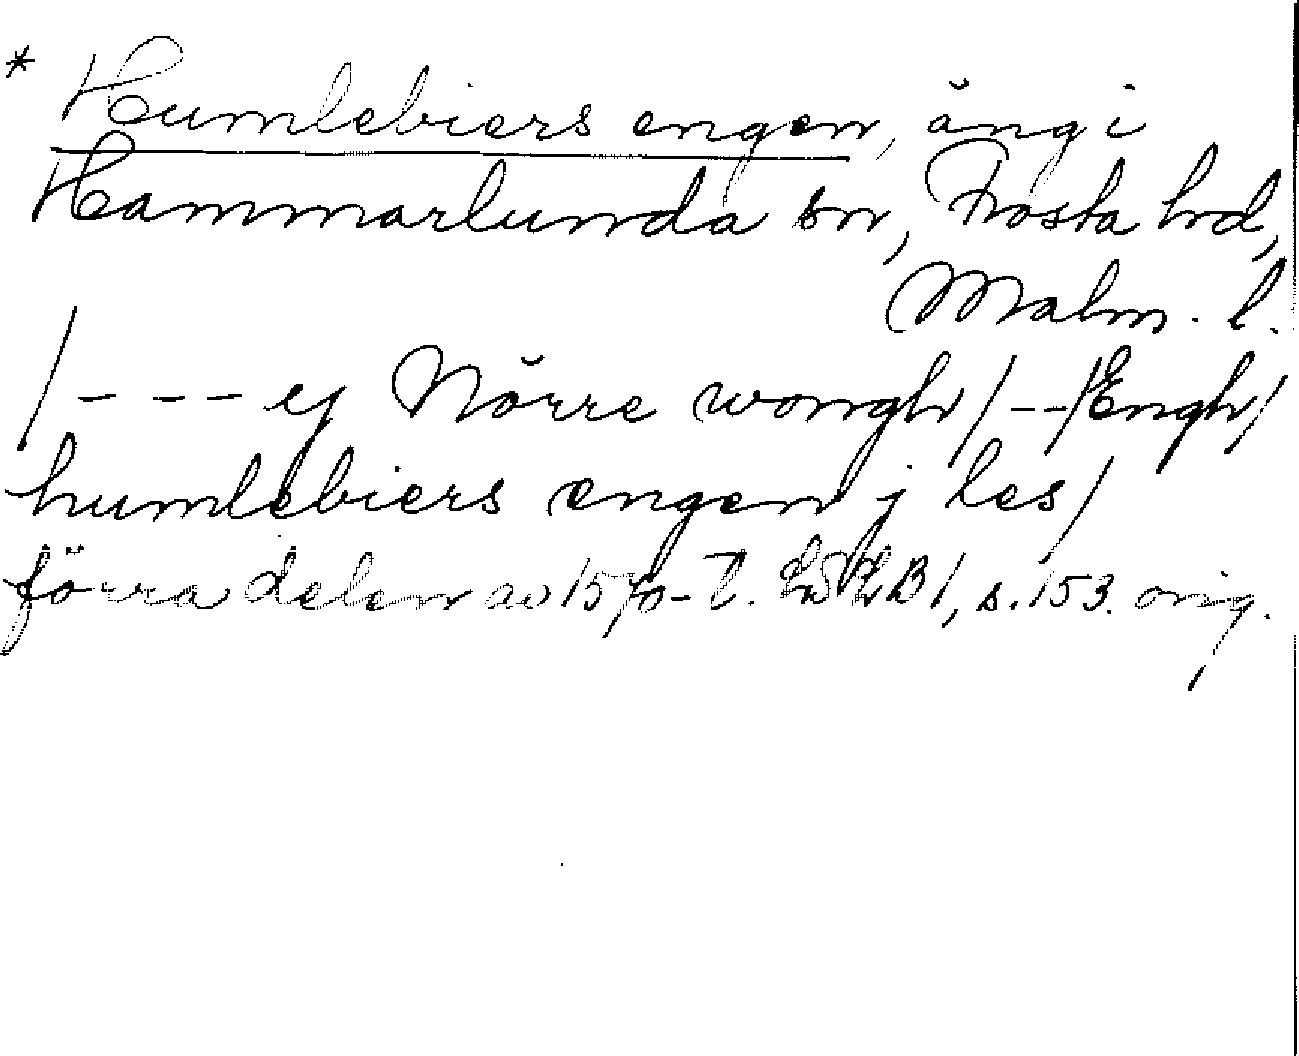 * Humlebiers engen, äng i
Hammarlunda sn, Frosta hd,
Malm. l.
/- - - - ej Nörre wongh/ - -/Engh/
humlebiers engen j les/
förra delen av 1570-t. LSLB 1, s. 153. orig.